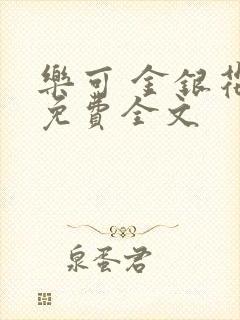 樂可 金銀花
免費全文
泉蛋君